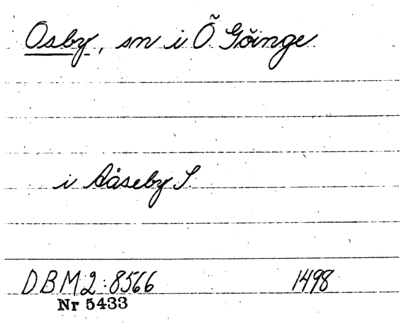 Osby, sn i Ö Göinge
i Aåseby S.
DBM2:8566 1498
Nr 5433